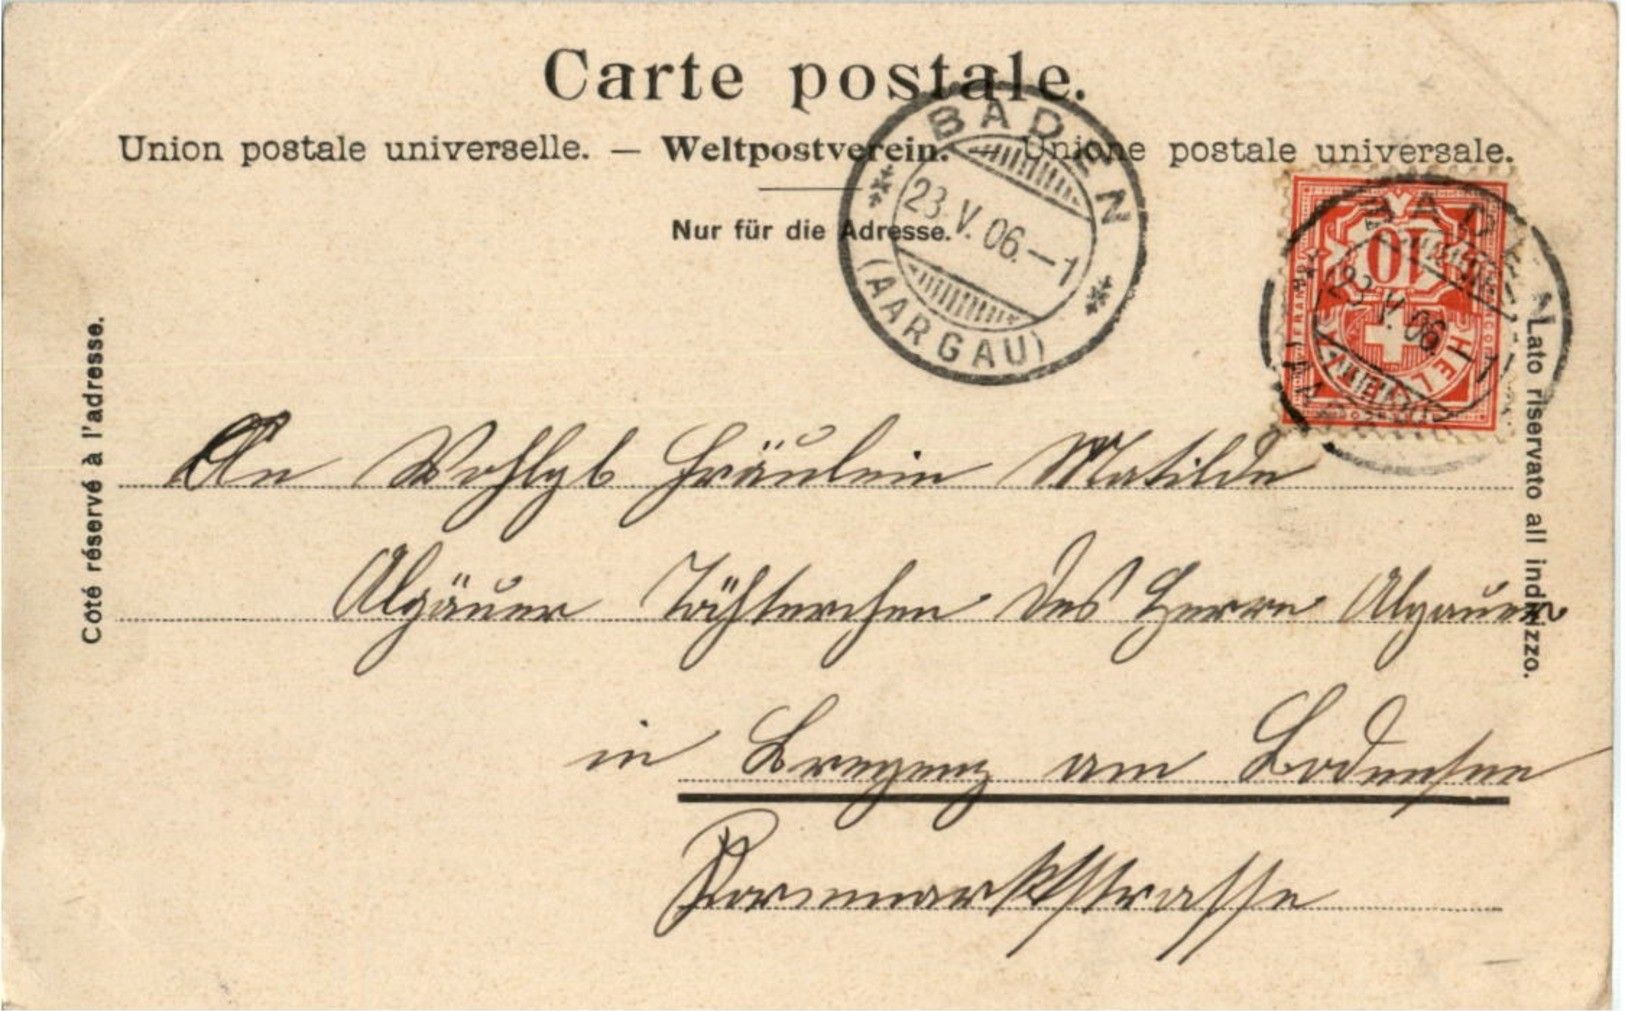 Carte postale.
Union postale universelle. — Weltpostverein. — Unione postale universale.
Nur für die Adresse.
BADEN
23.V.06.–1
(AARGAU)
10
BADEN
23.V.06.–1
HELVETIA
Côté réservé à l'adresse.
Lato riservato all indirizzo.
An Wohlgb Fräulein Matilde
Algäuer Töchterchen des Herrn Algäuer
in Bregenz am Bodensee
Kornmarktstrasse